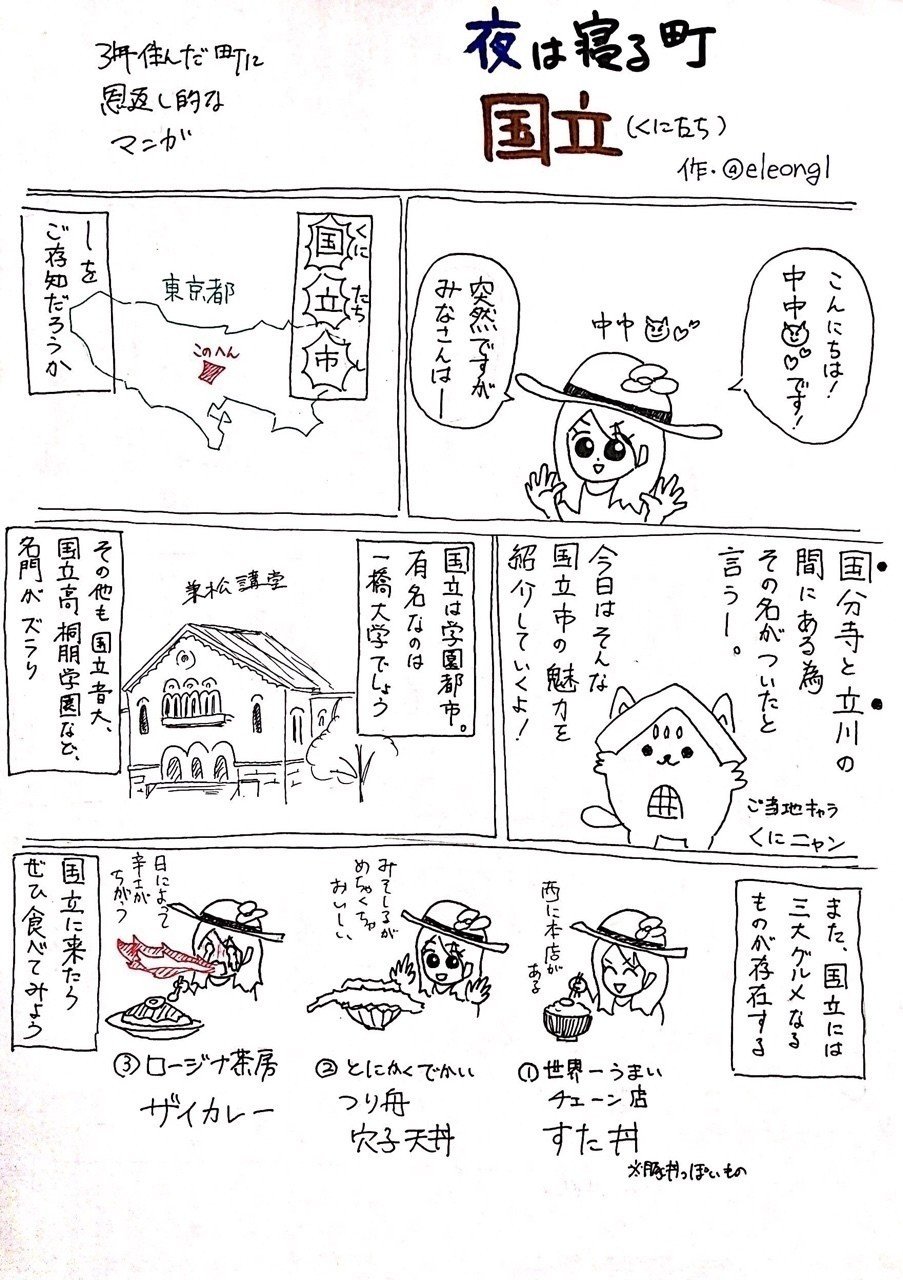 夜は寝る町
国立(くにたち)
作・@eleong1
3年住んだ町に
恩返し的な
マンガ
こんにちは!
中中😈♡♡です!
中中😈♡♡
突然ですが
みなさんは—
くに たち
国立市
東京都
このへん
—を
ご存知だろうか
国分寺と立川の
間にある為
その名がついたと
言うー。
今日はそんな
国立市の魅力を
紹介していくよ!
ご当地キャラ
くにニャン
国立は学園都市。
有名なのは
一橋大学でしょう
兼松講堂
その他も国立音大、
国立高、桐朋学園など、
名門がズラリ
また、国立には
三大グルメなる
ものが存在する
西に本店が
ある
①世界一うまい
チェーン店
すた丼
※豚丼っぽいもの
みそしるが
めちゃくちゃ
おいしい
②とにかくでかい
つり舟
穴子天丼
日によって
辛さが
ちがう
③ロージナ茶房
ザイカレー
国立に来たら
ぜひ食べてみよう